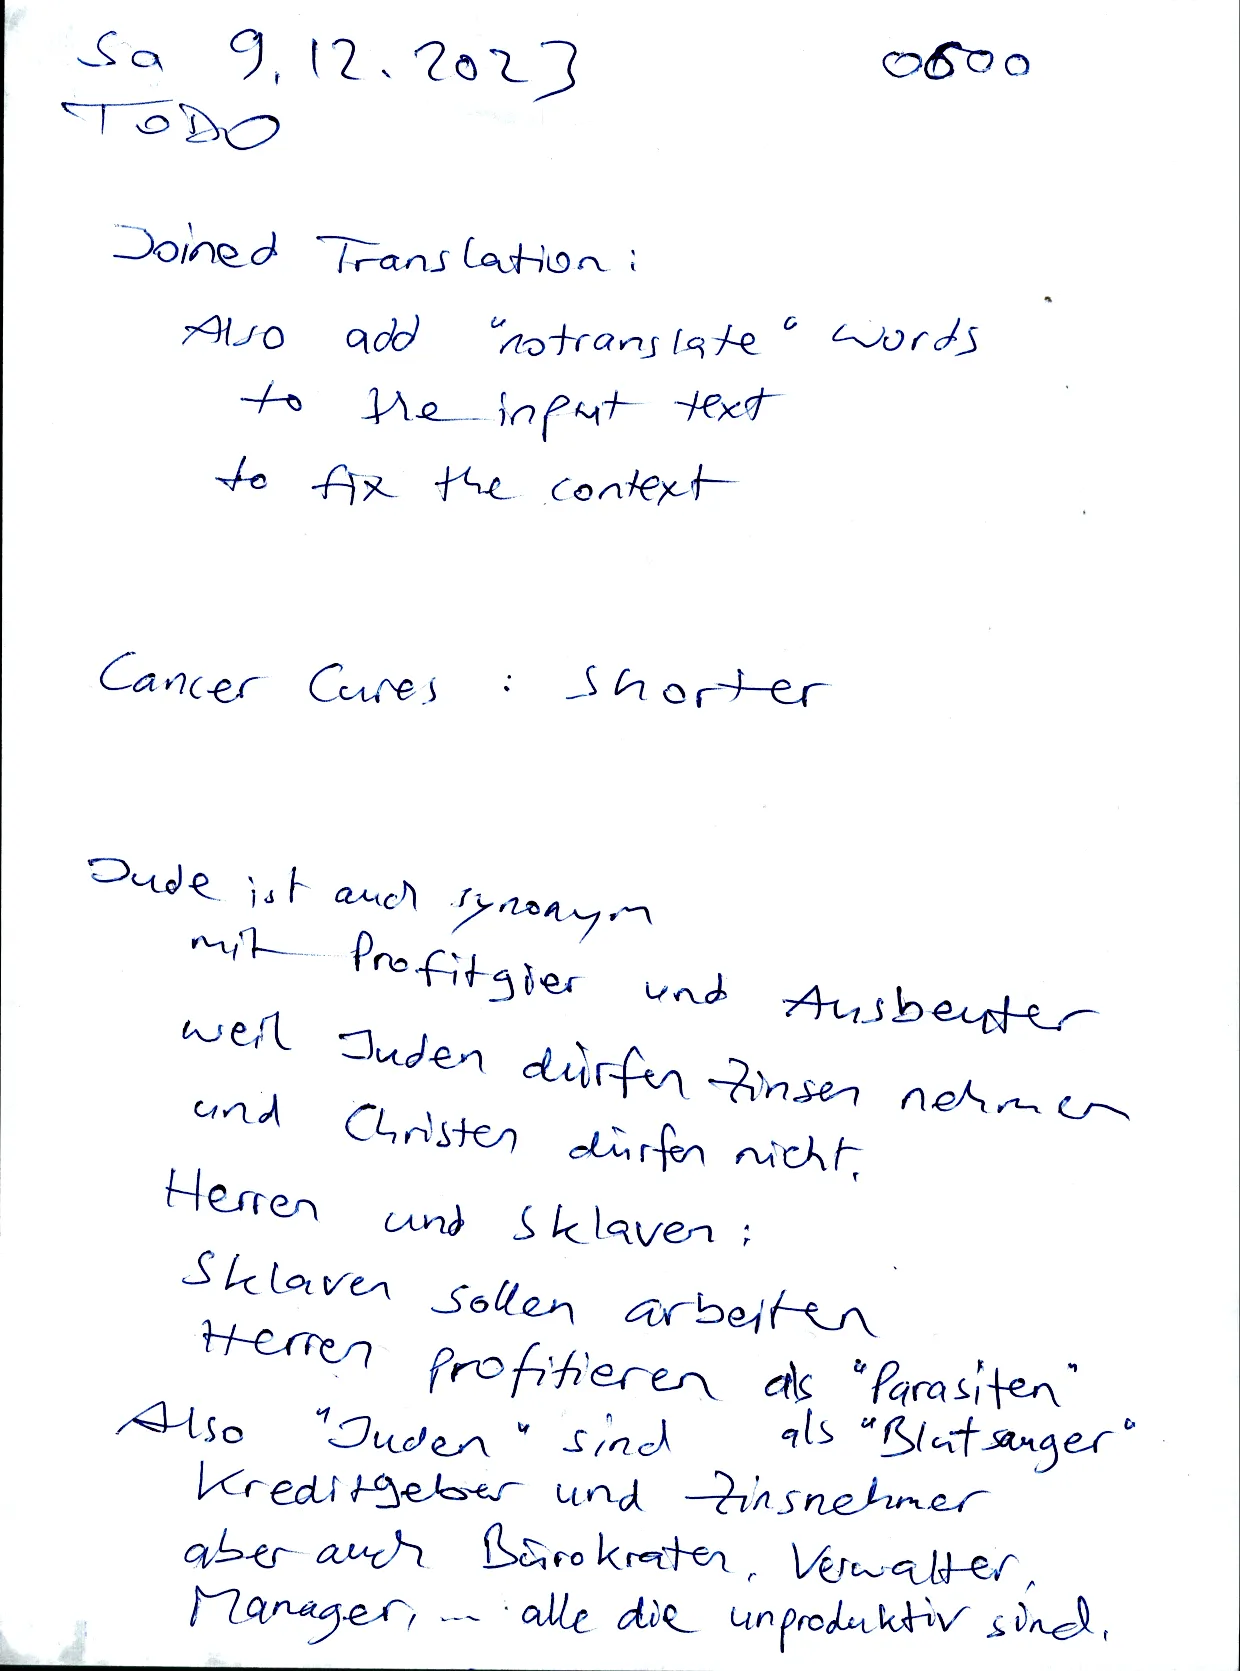 Sa 9.12.2023 0600
TODO
Joined Translation:
Also add "notranslate" words
to the input text
to fix the context
Cancer Cures: shorter
Jude ist auch synonym
mit Profitgier und Ausbeuter
weil Juden dürfen Zinsen nehmen
und Christen dürfen nicht.
Herren und Sklaven:
Sklaven sollen arbeiten
Herren profitieren als "Parasiten"
als "Blutsauger"
Also "Juden" sind
Kreditgeber und Zinsnehmer
aber auch Bürokraten, Verwalter,
Manager, ... alle die unproduktiv sind.